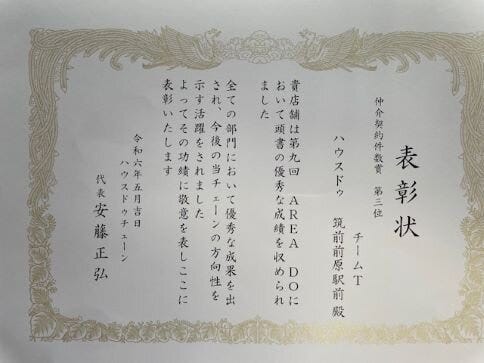 表彰状
仲介契約件数賞　第三位
チームT
ハウスドゥ　筑前前原駅前殿
貴店舗は第九回　AREA DOに
おいて頭書の優秀な成績を収められ
ました
全ての部門において優秀な成果を出
され、今後の当チェーンの方向性を
示す活躍をされました
よってその功績に敬意を表しここに
表彰いたします
令和六年五月吉日
ハウスドゥチェーン
代表　安藤正弘